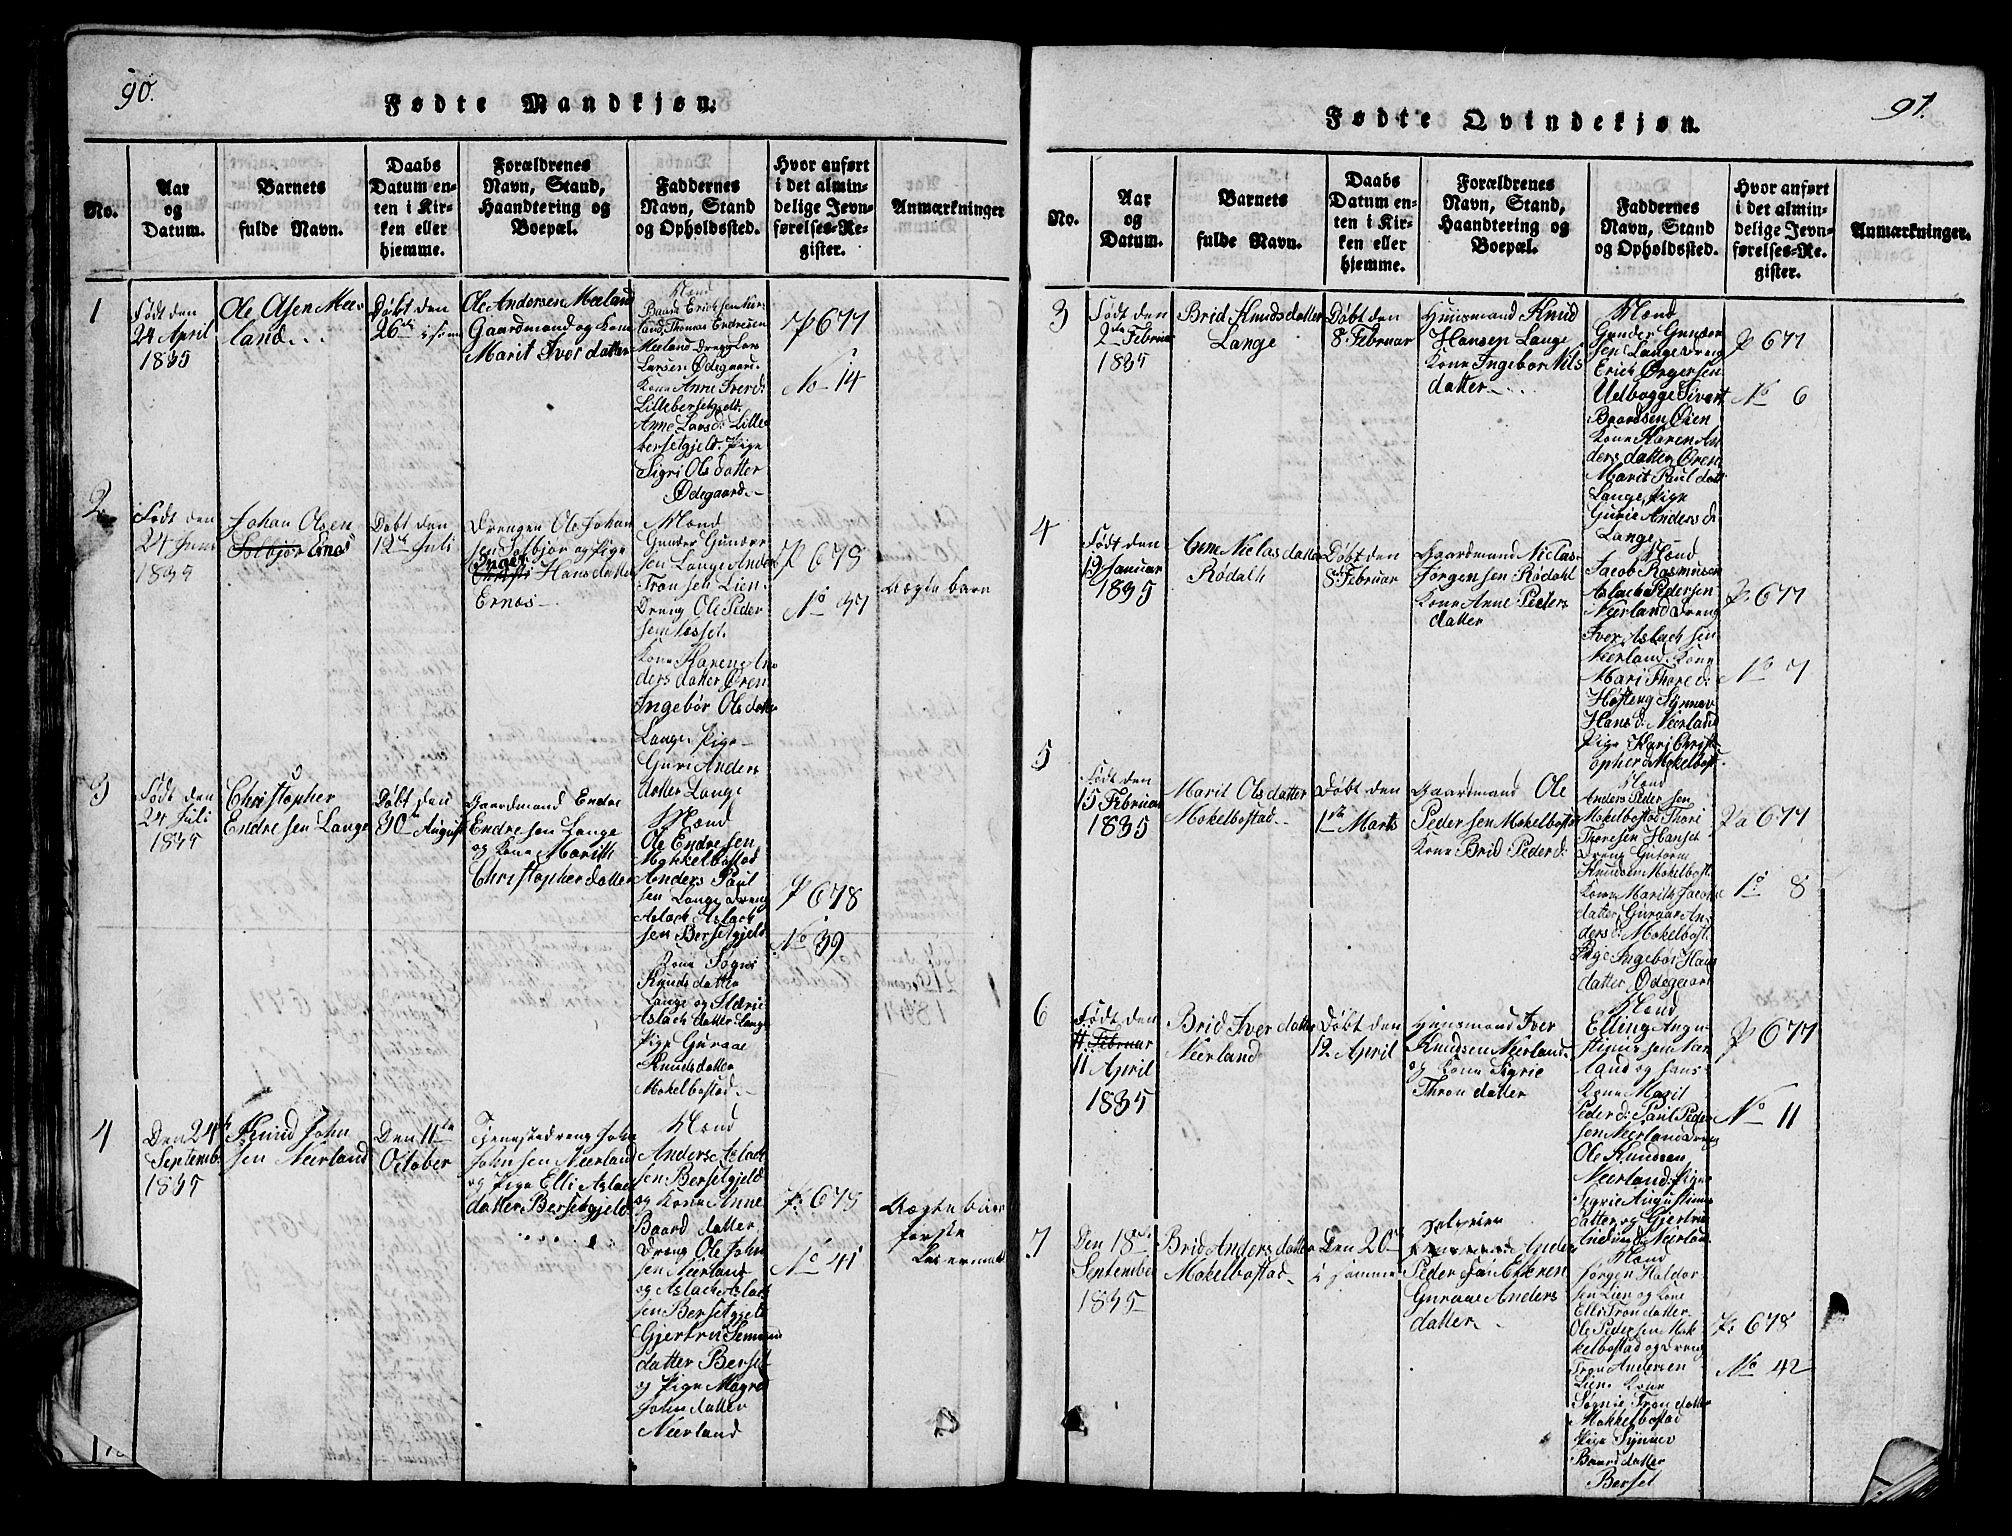 90.
Fødte Mandkjøn.
No.
Aar
og
Datum.
Barnets
fulde Navn.
Daabs
Datum en-
ten i Kir-
ken eller
hjemme.
Forældrenes
Navn, Stand,
Haandtering og
Boepæl.
Faddernes
Navn, Stand
og Opholdssted.
Hvor anført
i det almin-
delige Jevn-
førelses-Re-
gister.
Anmærkninger
1
Født den
24 April
1835
Ole Olsen Mee-
land
Døbt den
26de
Ole Andersen Meeland
Gaardmand og Kone
Marit Iversdatter
Mænd
Baard Erichsen
Thomas Endresen
Meeland Dreng Lars
Larsen Ødegaard
Kone Anne Iversd:
Lillebersetgjeld
Anne Larsd: Lille
bersetgjeld. Pige
Sigri Olsdatter
Ødegaard
P 677
No 14
2
Født den
24 Juni
1835
Johan Olsen
Solbjør Ernes
Døbt den
12te Juli
Drengen Ole Johan
sen Solbjør og Pige
Inger
Christi Hansdatter
Ernes
Mænd
Gunder Gunder
sen Lange Ander
Tronsen Lien
Dreng Ole Peder
sen Næsset
Kone Karen An
ders datter Øren
Ingebor Olsdatter
Lange Pige
Guri Anders
datter Lange
P 678
No 37
Uægte barn
3
Født den
24 Juli
1835
Christopher
Endresen Lange
Døbt den
30te August
Gaardmand Endre
Endresen Lange
og Kone Marith
Christopherdatter
Mænd
Ole Endresen
Mokkelbostad
Anders Paul
sen Lange Dreng
Aslach Aslach
sen Bersetgjeld
Kone Søgni
Knudsdatter
Lange og Marie
Aslachdatter Lange
Pige Guraae
Knudsdatter
Mokelbostad
P 678
No 39
4
Den 24de
Septemb
1835
Knud John
sen Neerland
Den 11te
October
Tjenestedreng John
Johnsen Neerland
og Pige Elli Aslach
datter Bersetgjeld
Mænd
Anders Aslach
sen Bersetgjeld
og Kone Anne
Baard datter
Dreng Ole John
sen Neerland
og Aslach Aslach
sen Bersetgjeld
Gjertru Simund
datter Berset
og Pige Magred
Johndatter
Neerland
P: 678
No 41
Uægte barn
første
Leiermaal
91.
Fødte Qvindekjøn.
No.
Aar
og
Datum.
Barnets
fulde Navn.
Daabs
Datum en-
ten i Kir-
ken eller
hjemme.
Forældrenes
Navn, Stand,
Haandtering og
Boepæl.
Faddernes
Navn, Stand
og Opholdssted.
Hvor anført
i det almin-
delige Jevn-
førelses-Re-
gister.
Anmærkninger.
3
Født den
2de Februar
1835
Brid Knudsdatter
Lange
Døbt den
8 Februar
Huusmand Knud
Hansen Lange
Kone Ingebor Nils
datter
Mænd
Gunder Gunder
sen Lange Dreng
Erich Ørgersen
Udbogge Sivert
Baardsen Øien
Kone Karen An
dersdatter Øren
Marit Pauldatt
Lange, Pige
Gurie Andersd:
Lange
P 677
No 6
4
Født den
19 Januar
1835
Anne Niclasdatter
Rödahl
Døbt den
8 Februar
Gaardmand Niclas
Jørgensen Rödahl
Kone Anne Peders
datter
Mænd
Jacob Rasmusen
Aslach Pedersen
Neerland Dreng
Iver Aslachsen
Neerland Kone
Mari Thored:
Høsteng Synnøv
Hansd: Neerland
Pige Kari Christ
opherd: Mokelbost.
P. 677
No 7
5
Født den
15 Februar
1835
Marit Olsdatter
Mokelbostad
Døbt den
1ste Marts
Gaardmand Ole
Pedersen Mokelbostad
Kone Brid Pederd:
Mænd
Anders Pedersen
Mokelbostad Thori
Thoresen Hanset
Dreng Guttorm
Knudsen Mokelbost.
Kone Marith Jacobs
datter, Guraae An
ders d: Mokelbost.
Pige Ingebor Hans
datter Ødegaard
Pa 677
No 8
6
Født den
11 Februar
11 April
1835
Brid Iverdatter
Neerland
Døbt den
12 April
Huusmand Iver
Knudsen Neerland
og Kone Sigrie
Throndatter
Mænd
Elling Augu
stinussen Neer
land og hans
Kone Marit
Pederd: Paul Peder
sen Neerland Dreng
Ole Knudsen
Neerland, Pige
Sigrie Augustinus
datter og Gjertru
Neerland
P 677
No 11
7
Den 18de
September
1835
Brid Andersdatter
Mokelbostad
Den 20de
i samme
Anders
Pedersen
Guraae Anders
datter
Mænd
Jørgen Haldor
sen Lien og Kone
Elli Trondatter
Ole Pedersen Mok
kelbostad og Dreng
Tron Andersen
Lien Kone
Søgnie Trondatter
Mokkelbostad
Pige Synnev
Baarddatter
Berset
P: 678
No 42